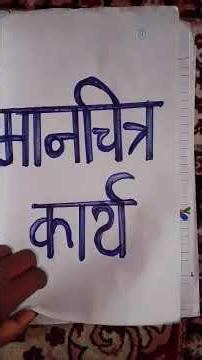 मानचित्र
कार्य